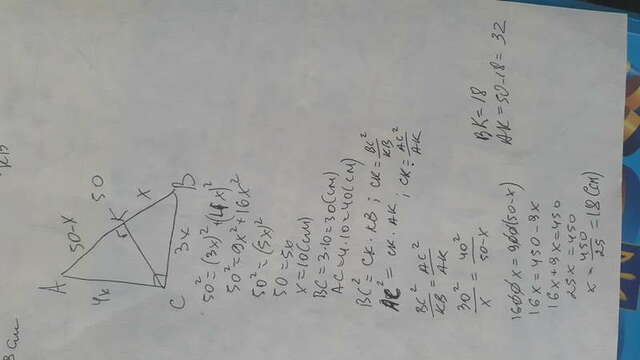 A
50-x
50
K
x
B
4x
3x
C
50² = (3x)² + (4x)²
50² = 9x² + 16x²
50² = (5x)²
50 = 5x
x = 10 (см)
BC = 3·10 = 30 (см)
AC = 4·10 = 40 (см)
BC² = CK · KB ; CK = BC²/KB
AC² = CK · AK ; CK = AC²/AK
BC²/KB = AC²/AK
30²/x = 40²/50-x
1600x = 900(50-x)
16x = 450 - 9x
16x + 9x = 450
25x = 450
x = 450/25 = 18 (см)
BK = 18
AK = 50-18 = 32